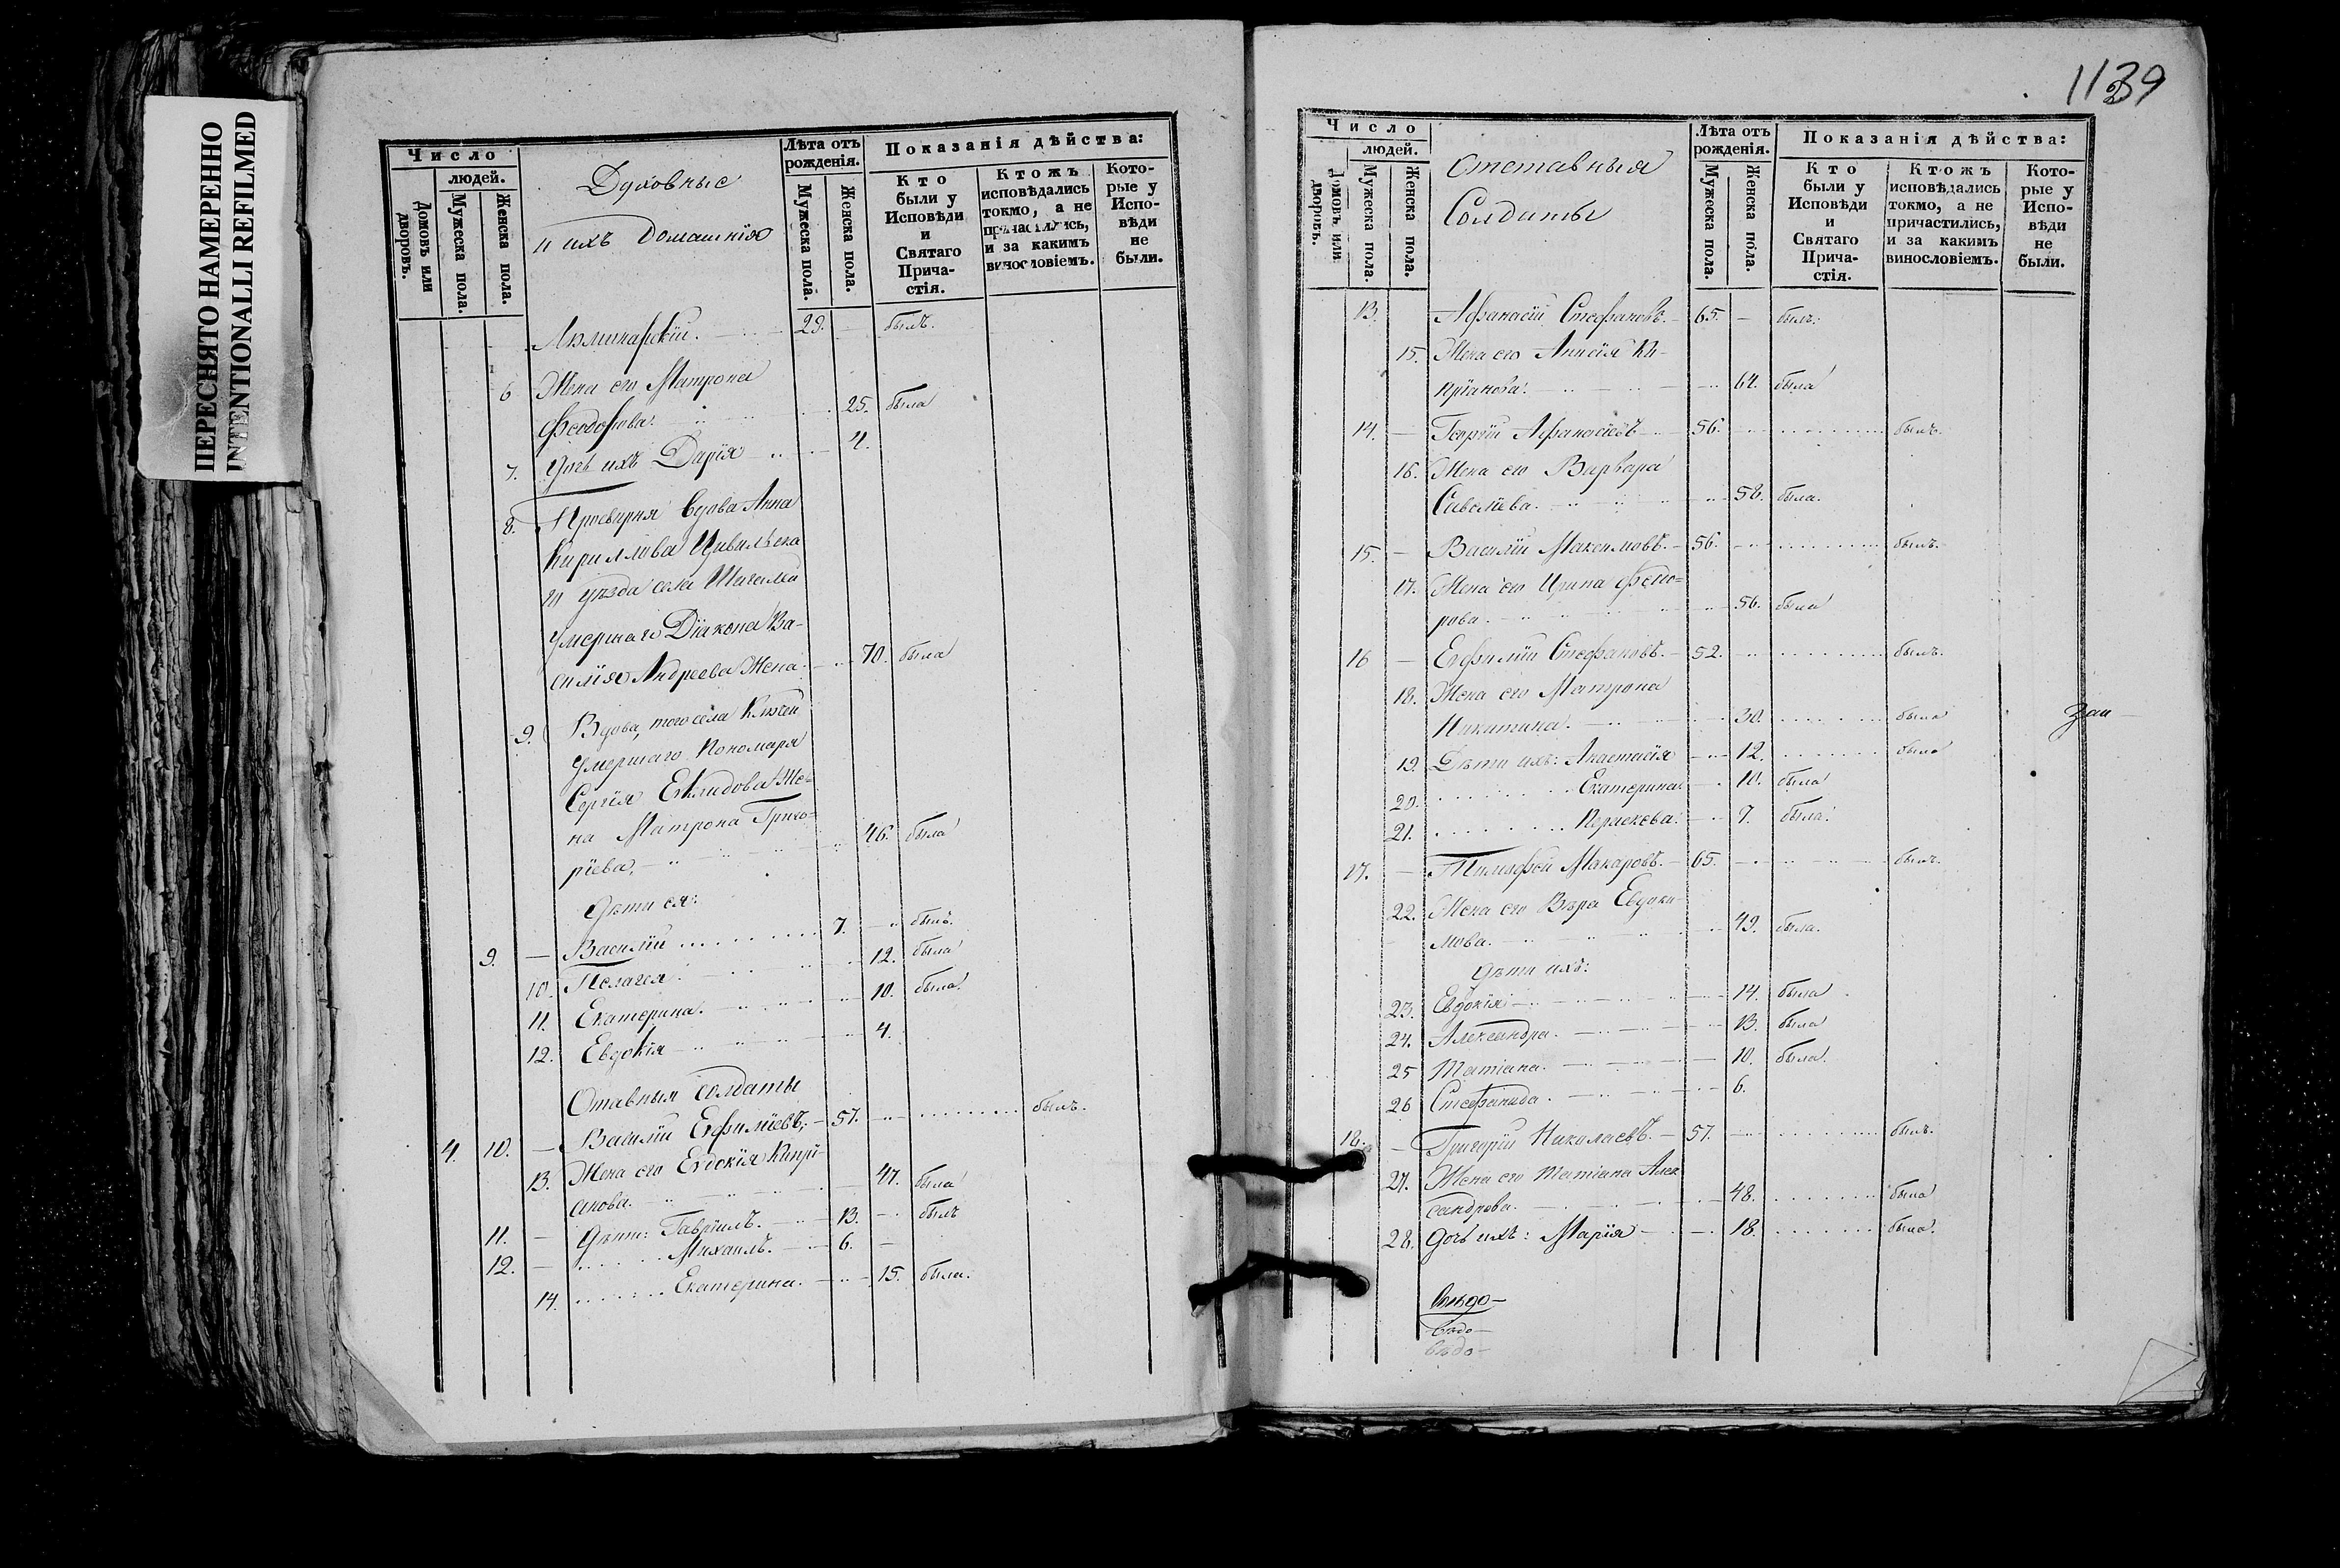 ПЕРЕСНЯТО НАМЕРЕННО
INTENTIONALLI REFILMED
Число
людей.
Домовъ или дворовъ.
Мужеска пола.
Женска пола.
Духовные
и ихъ домашнія
Лѣта отъ рожденія.
Мужеска пола.
Женска пола.
Показанія дѣйства:
Кто были у Исповѣди и Святаго Прича-стія.
Ктожъ исповѣдались токмо, а не причастились, и за какимъ винословіемъ.
Кото-рые у Испо-вѣди не были.
29. былъ.
6 Жена его Матрона
25. была
7. Дочь ихъ Дарія 4.
8. Просвирня вдова Анна
Кириллова Цивильска
го уѣзда села
умершаго Діакона Ва-
силія Андреева Жена 70. была
9. Вдова, того села
умершаго Пономаря
Сергія Жe-
на Матрона Григо-
ріева, 46. была
Дѣти ея:
9. — Василій 7. былъ.
10. Пелагея 12. была
11. Екатерина. 10. была.
12. Евдокія 4.
Отавныя солдаты
4. 10. — Василій Евфиміевъ, 57. былъ.
13. Жена его Евдокія Кипрі-
анова. 47. была
11. — Дѣти: Гавріилъ. 13. былъ
12. — Михаилъ. 6. —
14. Екатерина. 15. была.
1139
Число
людей.
Домовъ или дворовъ.
Мужеска пола.
Женска пола.
Отставныя
Солдаты
Лѣта отъ рожденія.
Мужеска пола.
Женска пола.
Показанія дѣйства:
Кто были у Исповѣди и Святаго Прича-стія.
Ктожъ исповѣдались токмо, а не причастились, и за какимъ винословіемъ.
Кото-рые у Испо-вѣди не были.
13. Афанасій Стефановъ. 65. — былъ.
15. Жена его Ки-
пріанова. 64. была
14. — Георгій Афанасіевъ 56. былъ.
16. Жена его Варвара
Савеліева. 58. была.
15. — Василій Максимовъ. 56. былъ.
17. Жена его Ирина Фeдо-
рова. 56. была
16 — Евфимій Стефановъ. 52. былъ.
18. Жена его Матрона
Никитина. 30. была
19. Дѣти ихъ: Анастасія 12. была
20. Екатерина. 10. была
21. Параскева. 7. была.
17. — Тимофей Макаровъ. 65. былъ.
22. Жена его Вѣра Евдоки-
мова. 49. была.
Дѣти ихъ:
23. Евдокія 14. была
24. Александра. 13. была
25 Татіана. 10. была.
26 Стефанида. 6.
18. — Григорій Николаевъ. 57. былъ.
27. Жена его Татіана Алек
сандрова. 48. была
28. Дочь ихъ: Марія 18. была.